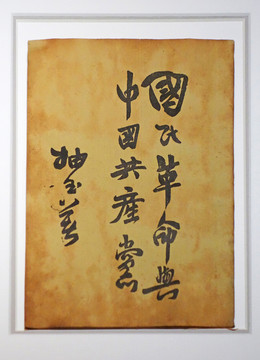 國民革命與
中國共產黨
著